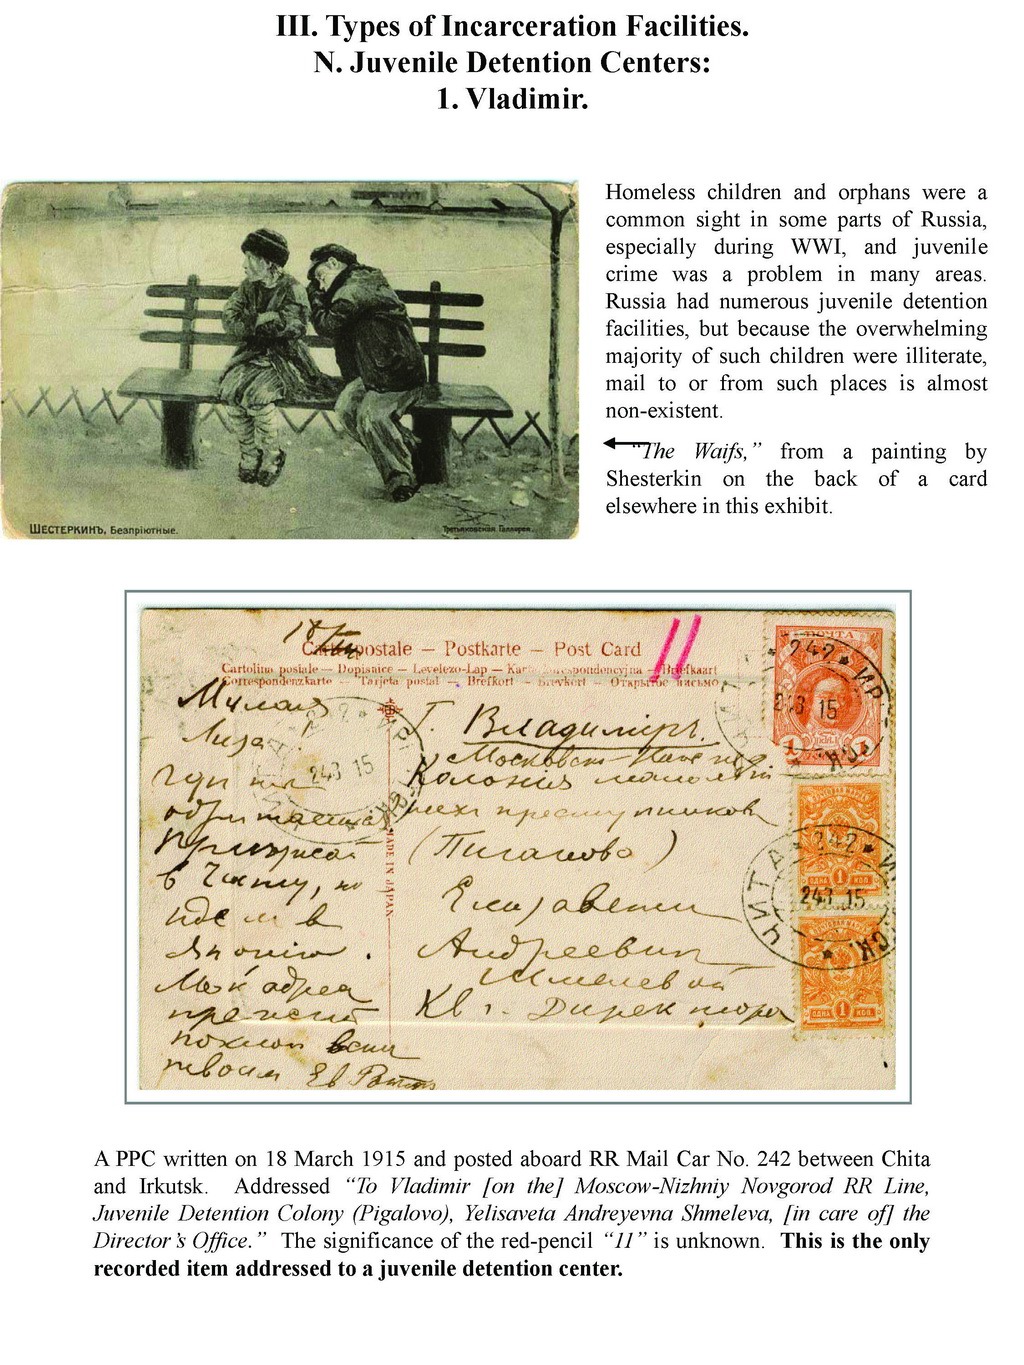 III. Types of Incarceration Facilities.
N. Juvenile Detention Centers:
1. Vladimir.
ШЕСТЕРКИНЪ, Безпріютные.
Третьяковская Галлерея.
Homeless children and orphans were a
common sight in some parts of Russia,
especially during WWI, and juvenile
crime was a problem in many areas.
Russia had numerous juvenile detention
facilities, but because the overwhelming
majority of such children were illiterate,
mail to or from such places is almost
non-existent.
“The Waifs,” from a painting by
Shesterkin on the back of a card
elsewhere in this exhibit.
18/III
Carte postale – Postkarte – Post Card
Cartolina postale – Dopisnice – Levelezo-Lap –
Correspondenzkarte – Tarjeta postal – Brefkort – Brevkort – Открытое письмо
11
Милая
Лиза!
в Читу, но
в
Японію.
Мой адрес
прежній
всем
MADE IN JAPAN
Г. Владиміръ.
Колонія малолѣт
них преступников
Елизавете
Андреевне
Шмелевой
Кв. Директора
ПОЧТА
242 ИР
24 3 15
1 1
242
24 3 15
ЧИТА
242
24 3 15
ОДНА 1 КОП.
ОДНА 1 КОП.
A PPC written on 18 March 1915 and posted aboard RR Mail Car No. 242 between Chita
and Irkutsk. Addressed “To Vladimir [on the] Moscow-Nizhniy Novgorod RR Line,
Juvenile Detention Colony (Pigalovo), Yelisaveta Andreyevna Shmeleva, [in care of] the
Director’s Office.” The significance of the red-pencil “11” is unknown. This is the only
recorded item addressed to a juvenile detention center.